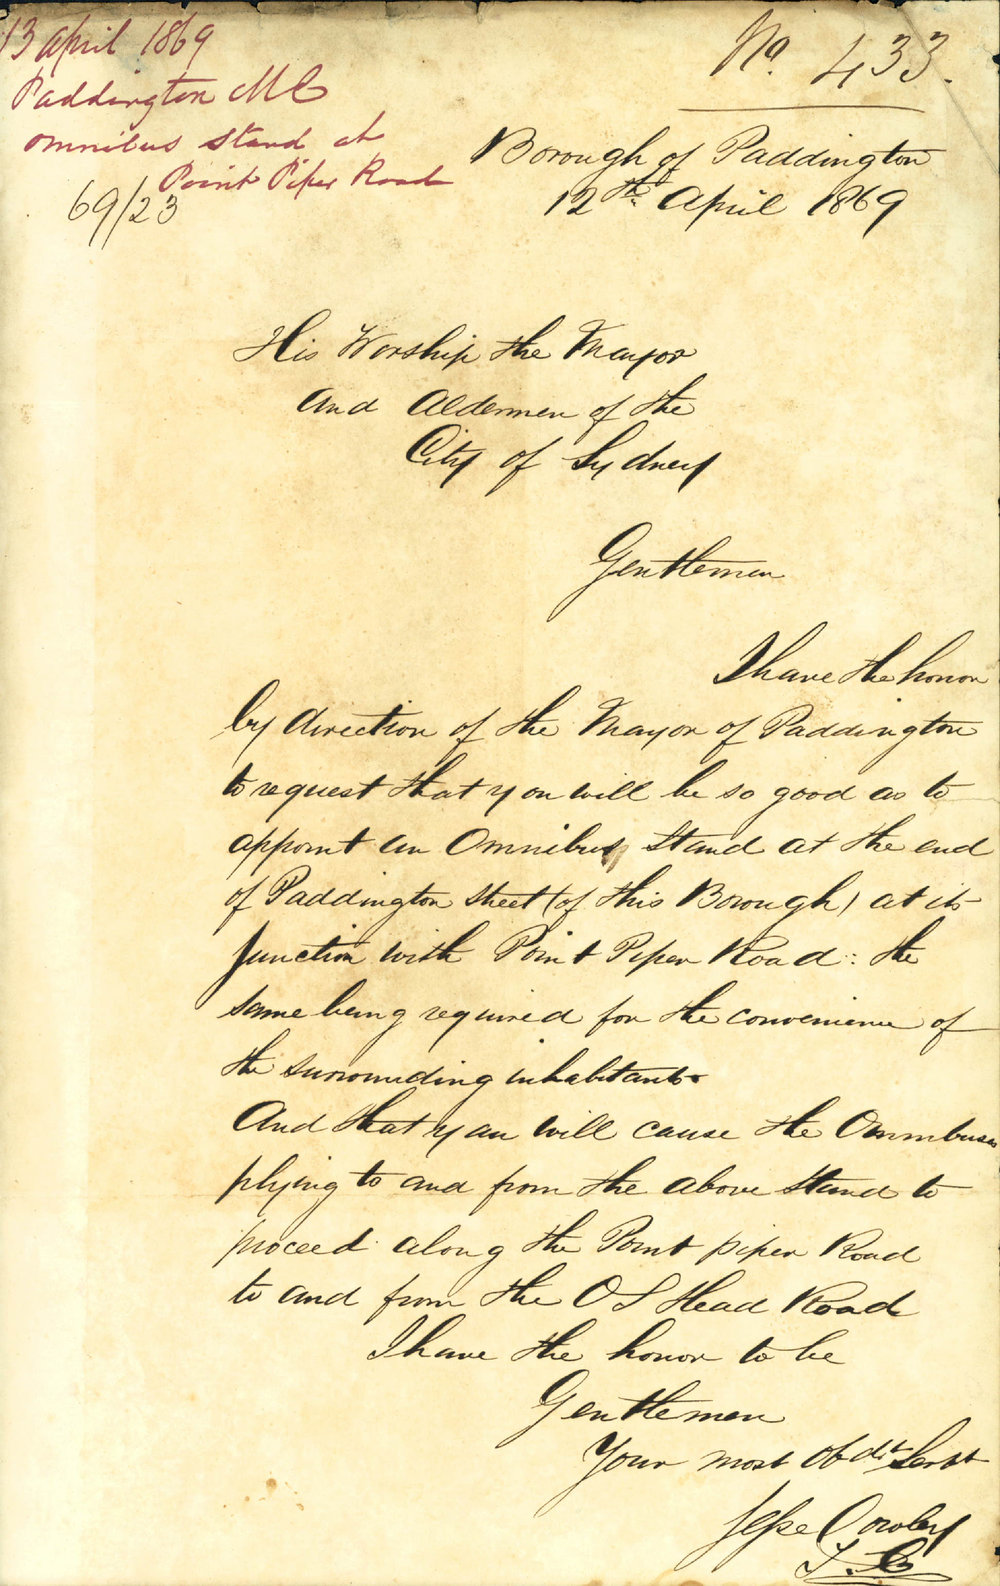 13 April 1869
Paddington M C
Omnibus Stand at
Point Piper Road
69/23
No. 433.
Borough of Paddington
12th. April 1869
His Worship the Mayor
and Aldermen of the
City of Sydney
Gentlemen
I have the honor
by direction of the Mayor of Paddington
to request that you will be so good as to
appoint an Omnibus Stand at the end
of Paddington Street (of this Borough) at its
Junction with Point Piper Road: the
same being required for the convenience of
the surrounding inhabitants
And that you will cause the Omnibuses
plying to and from the above Stand to
proceed along the Point piper Road
to and from the O S Head Road
I have the honor to be
Gentlemen
Your most Obdt Servt
Jesse Cowley